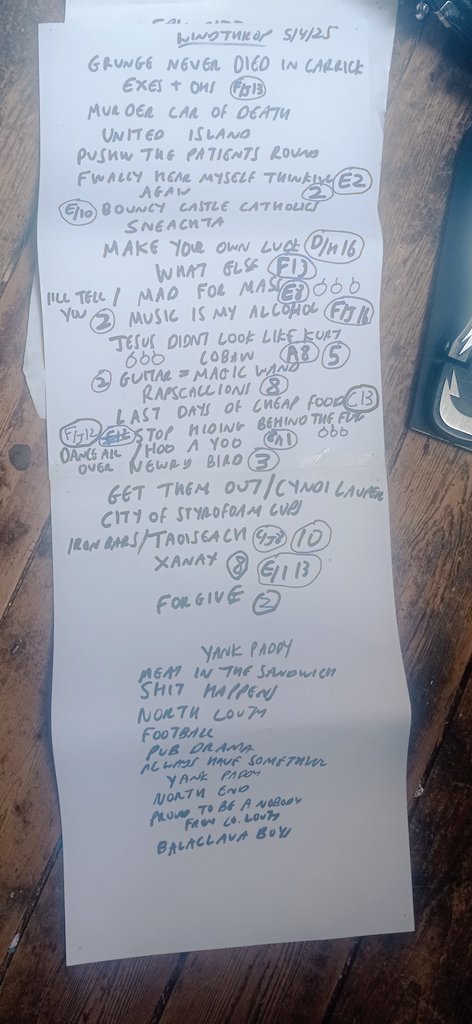 WINDTHROP 5/4/25
GRUNGE NEVER DIED IN CARRICK
EXES + OHS
MURDER CAR OF DEATH
UNITED ISLAND
PUSHIN THE PATIENTS ROUND
FINALLY HEAR MYSELF THINKING E2
AGAIN 2
E/10 BOUNCY CASTLE CATHOLICS
SNEACHTA
MAKE YOUR OWN LUCK D/M16
WHAT ELSE F13
ILL TELL / MAD FOR MASS E8
YOU 2 MUSIC IS MY ALCOHOL
JESUS DIDNT LOOK LIKE KURT
COBAIN A8 5
2 GUITAR = MAGIC WAND
RAPSCALLIONS 8
LAST DAYS OF CHEAP FOOD C13
F/J12 STOP HIDING BEHIND THE FUG
DANCE ALL / HOO A YOO
OVER NEWRY BIRD 3
GET THEM OUT/CYNDI LAUPER
CITY OF STYROFOAM CUPS
IRON BARS/TAOISEACH 10
XANAX 8 E/I 13
FORGIVE 2
YANK PADDY
MEAT IN THE SANDWICH
SHIT HAPPENS
NORTH LOUTH
FOOTBALL
PUB DRAMA
ALWAYS HAVE SOMETHING
YANK PADDY
NORTH END
PROUD TO BE A NOBODY
FROM CO. LOUTH
BALACLAVA BOYS